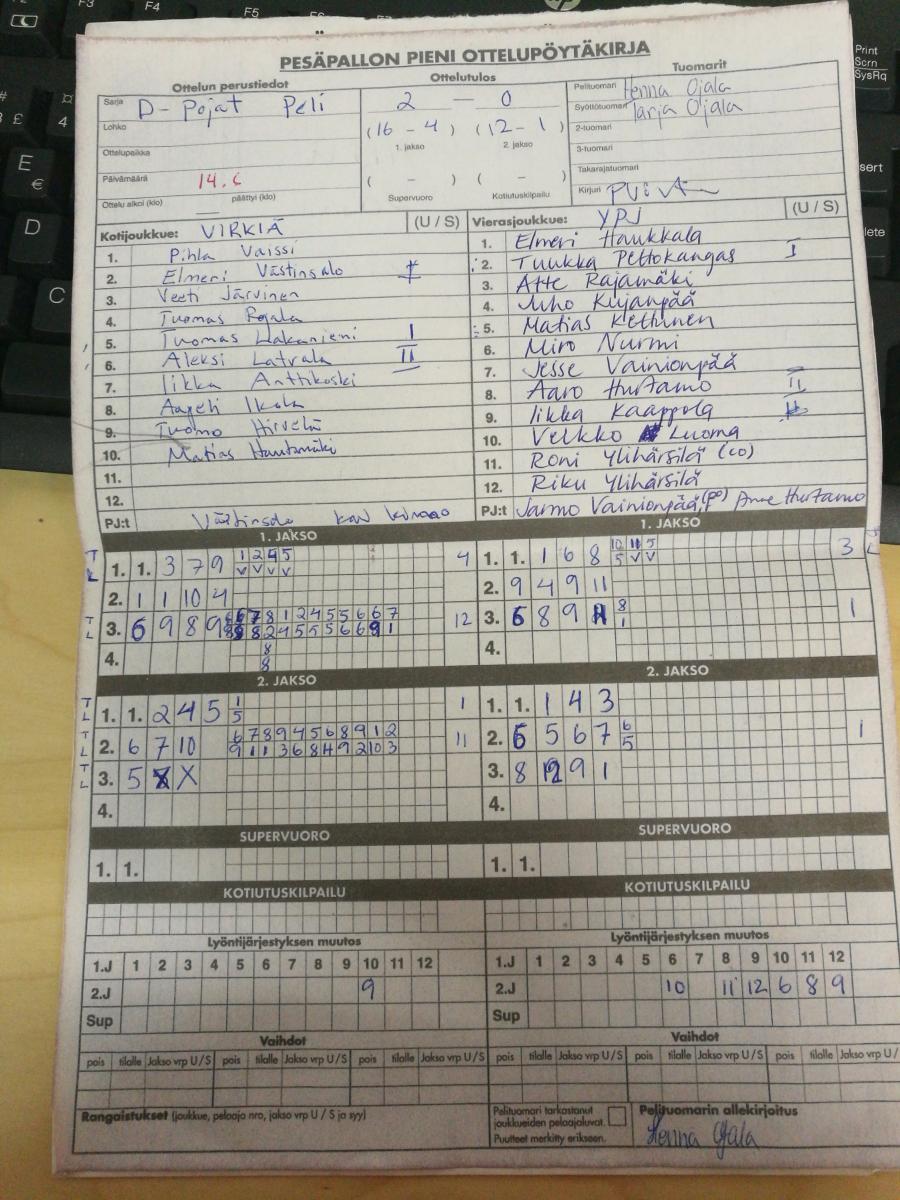 PESÄPALLON PIENI OTTELUPÖYTÄKIRJA
Ottelun perustiedot
Sarja D-Pojat Peli
Lohko
Ottelupaikka
Päivämäärä 14.6
Ottelu alkoi (klo) päättyi (klo)
Ottelutulos
2 - 0
(16 - 4) (12 - 1)
1. jakso 2. jakso
( - ) ( - )
Supervuoro Kotiutuskilpailu
Tuomarit
Pelituomari Henna Ojala
Syöttötuomari Tarja Ojala
2-tuomari
3-tuomari
Takarajatuomari
Kirjuri
Kotijoukkue: VIRKIÄ (U / S)
1. Pihla Vaissi
2. Elmeri Västinsalo
3. Veeti Järvinen
4. Tuomas Rajala
5. Tuomas Hakaniemi I
6. Aleksi Latvala II
7. Iikka Anttikoski
8. Aapeli Ikola
9. Tuomo Hirvelä
10. Matias Hautamäki
11.
12.
PJ:t Västinsalo
Vierasjoukkue: YPJ (U / S)
1. Elmeri Haukkala
2. Tuukka Peltokangas I
3. Atte Rajamäki
4. Juho Kujanpää
5. Matias Kettunen
6. Miro Nurmi
7. Jesse Vainionpää
8. Aaro Hurtamo II
9. Iikka Kaappola
10. Velkko Luoma
11. Roni Ylihärsilä (CO)
12. Riku Ylihärsilä
PJ:t Jarmo Vainionpää, (PO) Anne Hurtamo
1. JAKSO
T L 1. 1. 3 7 9 1 2 4 5 4
V V V V
2. 1 1 10 4
T L 3. 6 9 8 9 12
4.
1. JAKSO
1. 1. 1 6 8 10 11 5 3
5 V V
2. 9 4 9 11
3. 6 8 9 8 1
1
4.
2. JAKSO
T L 1. 1. 2 4 5 1 1
5
T L 2. 6 7 10 6 7 8 9 4 5 6 8 9 1 2 11
9 1 1 3 6 8 4 9 2 10 3
T L 3. 5 X X
4.
2. JAKSO
1. 1. 1 4 3
2. 6 5 6 7 6 1
5
3. 8 12 9 1
4.
SUPERVUORO
1. 1.
SUPERVUORO
1. 1.
KOTIUTUSKILPAILU
KOTIUTUSKILPAILU
Lyöntijärjestyksen muutos
1.J 1 2 3 4 5 6 7 8 9 10 11 12
2.J 9
Sup
Lyöntijärjestyksen muutos
1.J 1 2 3 4 5 6 7 8 9 10 11 12
2.J 10 11 12 6 8 9
Sup
Vaihdot
pois tilalle Jakso vrp U / S pois tilalle Jakso vrp U / S pois tilalle Jakso vrp U / S
Vaihdot
pois tilalle Jakso vrp U / S pois tilalle Jakso vrp U / S pois tilalle Jakso vrp U /
Rangaistukset (joukkue, pelaaja nro, jakso vrp U / S ja syy)
Pelituomari tarkastanut
joukkueiden pelaajaluvat.
Puutteet merkitty erikseen.
Pelituomarin allekirjoitus
Henna Ojala
F3
F4
F5
Print
Scrn
SysRq
£
4
E
€
D
C